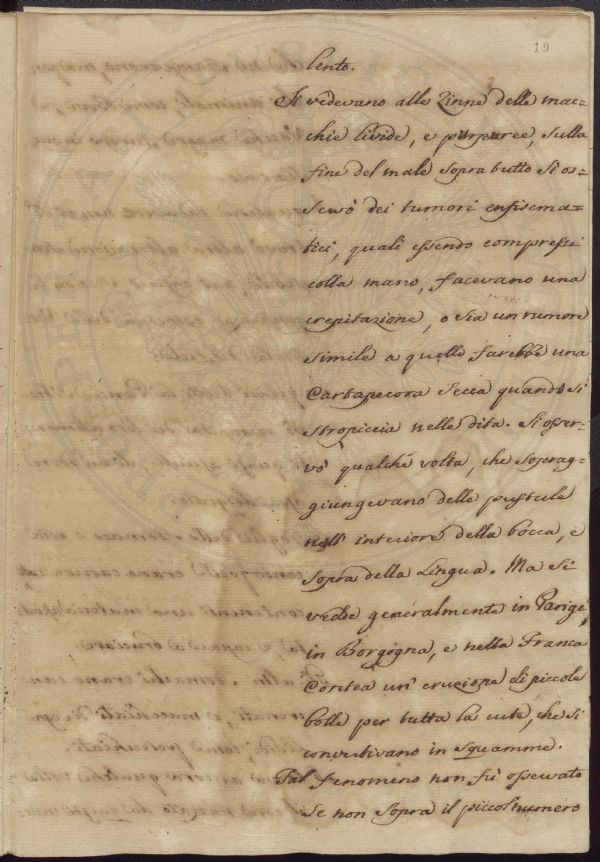 19
lento.
Si vedevano alle Zinne delle mac=
chie livide, e purpuree, sulla
fine del male sopra tutto si os=
servò dei tumori enfisema=
tici, quali essendo compressi
colla mano, facevano una
crepitazione, o sia un rumore
simile a quello farebbe una
Cartapecora secca quando si
stropiccia nelle dita. Si osser=
vò qualche volta, che soprag=
giungevano delle pustule
nell' interiore della bocca, e
sopra della Lingua. Ma si
vedde generalmente in Parigi,
in Borgogna, e nella Franca
Contea un' eruzione di piccole
bolle per tutta la cute, che si
convertivano in squamme.
Tal fenomeno non fù osservato
se non sopra il piccol numero